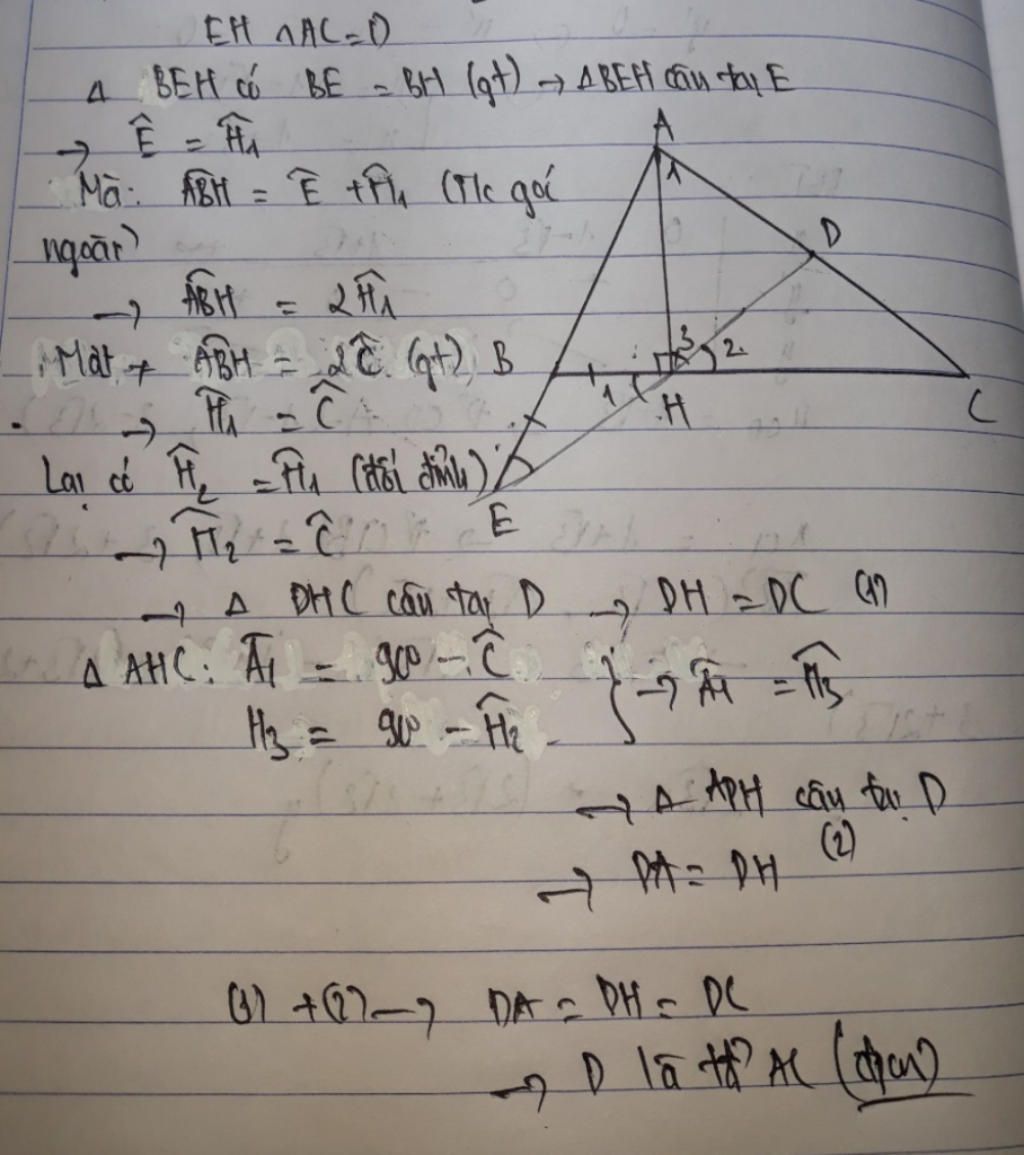 EH ∩ AC = D
Δ BEH có BE = BH (gt) → ΔBEH cân tại E
→ Ê = Ĥ₁
Mà: ABH = Ê + Ĥ₁ (T/c goí
ngoài)
→ ABH = 2Ĥ₁
Mặt ≠ ABH = 2Ĉ (gt)
→ Ĥ₁ = Ĉ
Lại có Ĥ₂ = Ĥ₁ (đối đỉnh)
→ Ĥ₂ = Ĉ
→ Δ DHC cân tại D → DH = DC (1)
Δ AHC: Â₁ = 90° - Ĉ
H₃ = 90° - Ĥ₂
} → Â₁ = Ĥ₃
→ Δ ADH cân tại D
→ DA = DH (2)
(1) + (2) → DA = DH = DC
→ D là tđ AC (đpcm)
A
1
D
B
3
2
1
H
C
E